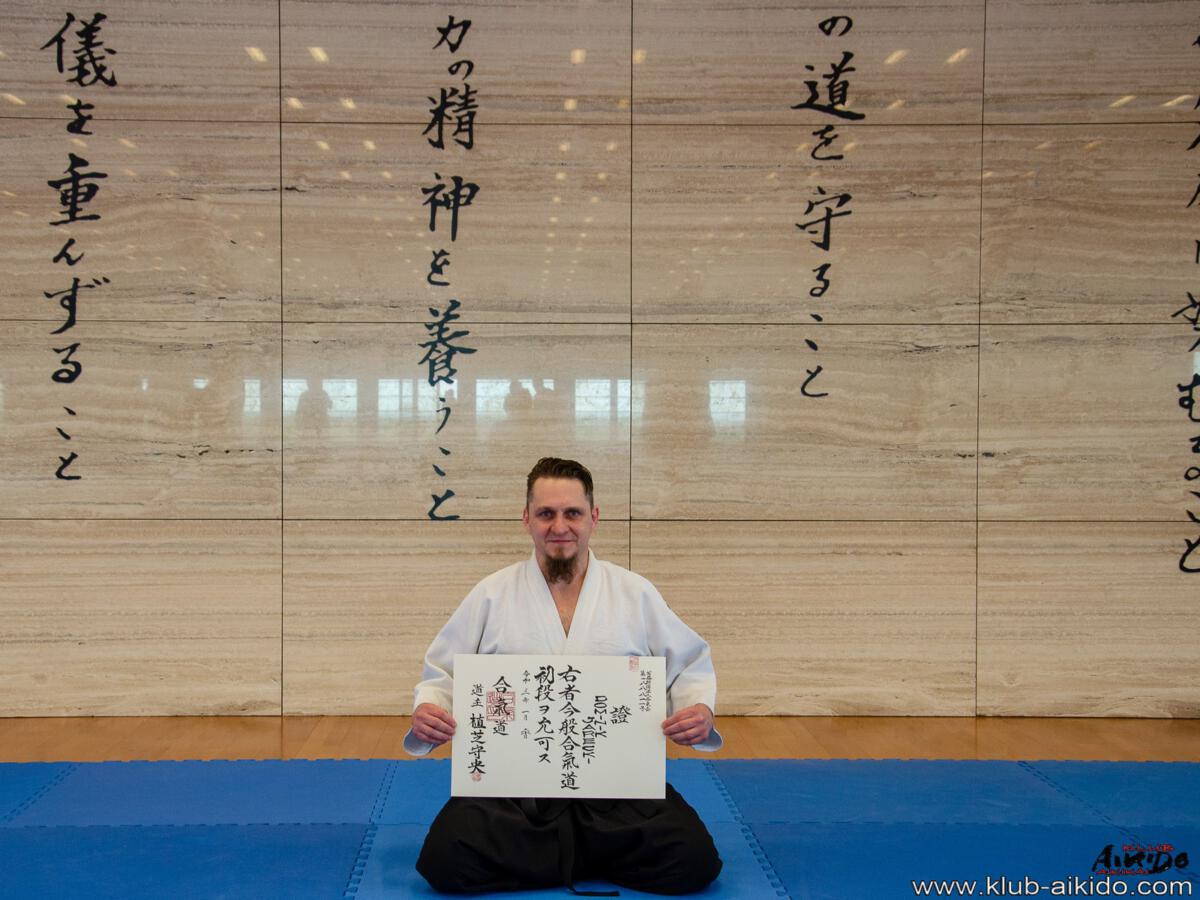 努むること
の道を守ること
力の精神を養うこと
儀を重んずること
證
右者今般合氣道
初段ヲ允可ス
令和三年一月
合氣道
道主 植芝守央
AIKIDO
www.klub-aikido.com